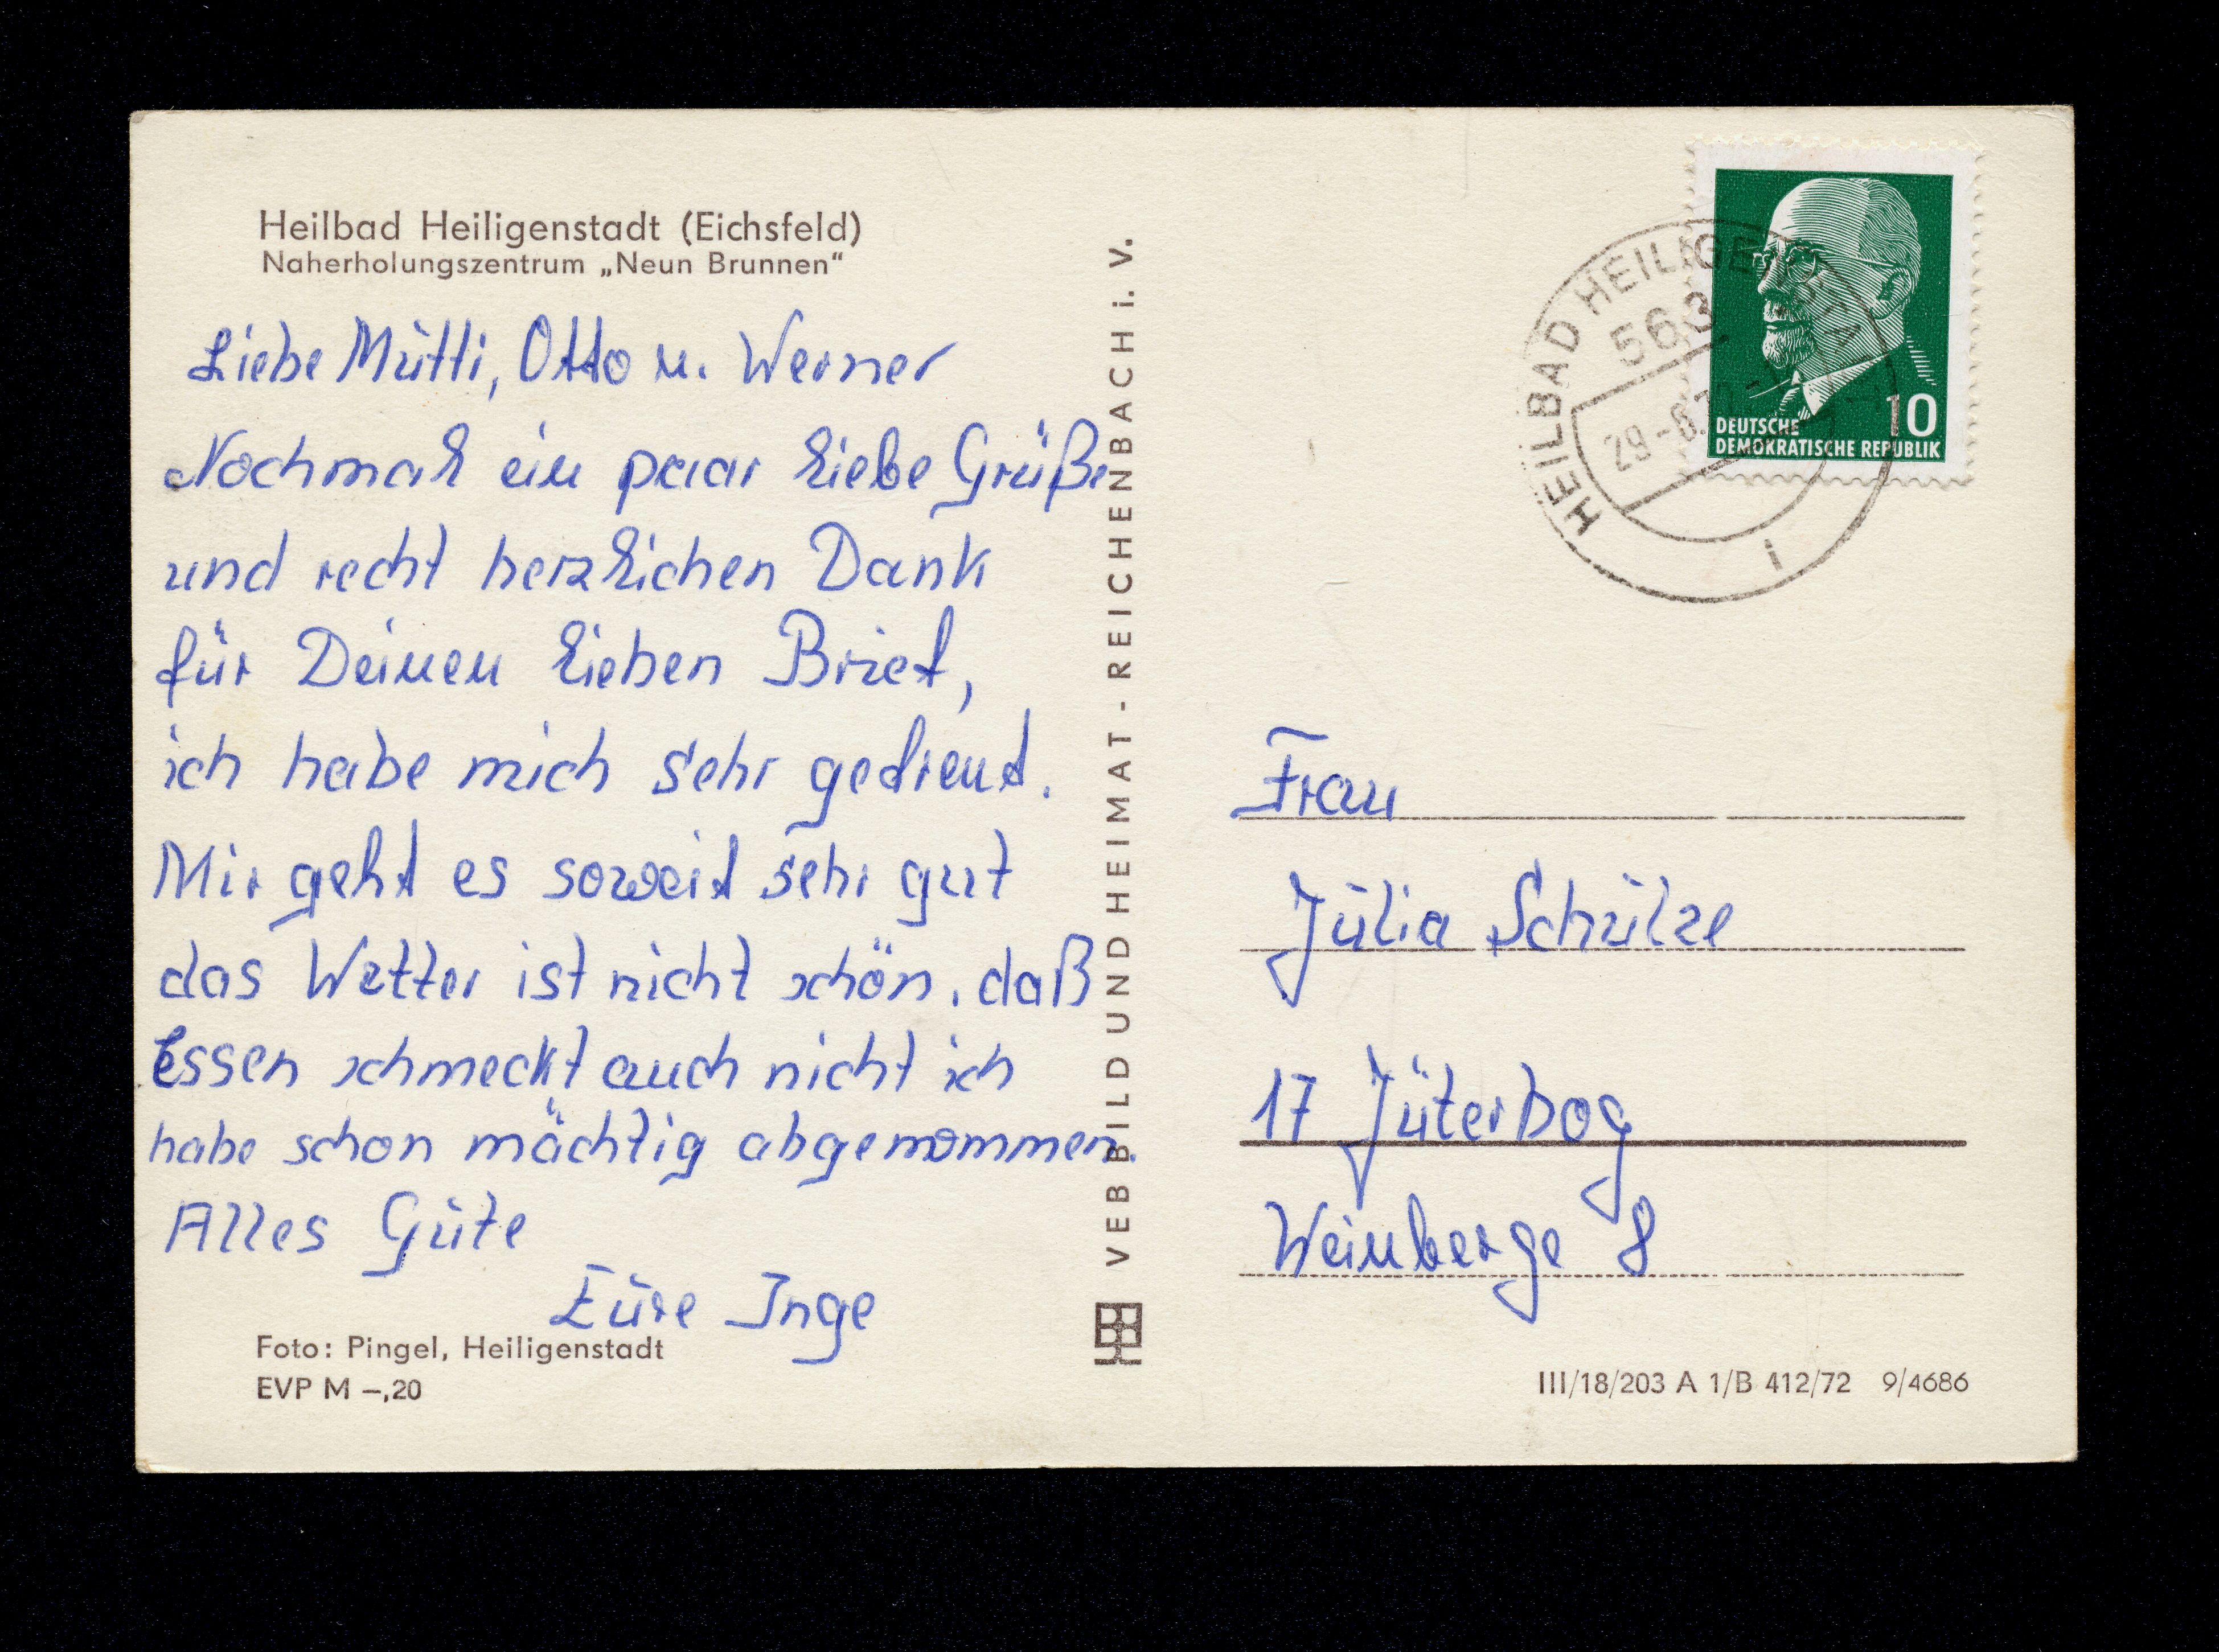 Heilbad Heiligenstadt (Eichsfeld)
Naherholungszentrum „Neun Brunnen“
Liebe Mutti, Otto u. Werner
Nochmal ein paar liebe Grüße
und recht herzlichen Dank
für Deinen lieben Brief,
ich habe mich sehr gefreut.
Mir geht es soweit sehr gut
das Wetter ist nicht schön, daß
Essen schmeckt auch nicht ich
habe schon mächtig abgenommen.
Alles Gute
Eure Inge
Foto: Pingel, Heiligenstadt
EVP M –,20
VEB BILD UND HEIMAT - REICHENBACH i. V.
HEILBAD HEILIGENSTADT
563
29.-6.7
i
10
DEUTSCHE
DEMOKRATISCHE REPUBLIK
Frau
Julia Schulze
17 Jüterbog
Weinberge 8
III/18/203 A 1/B 412/72 9/4686